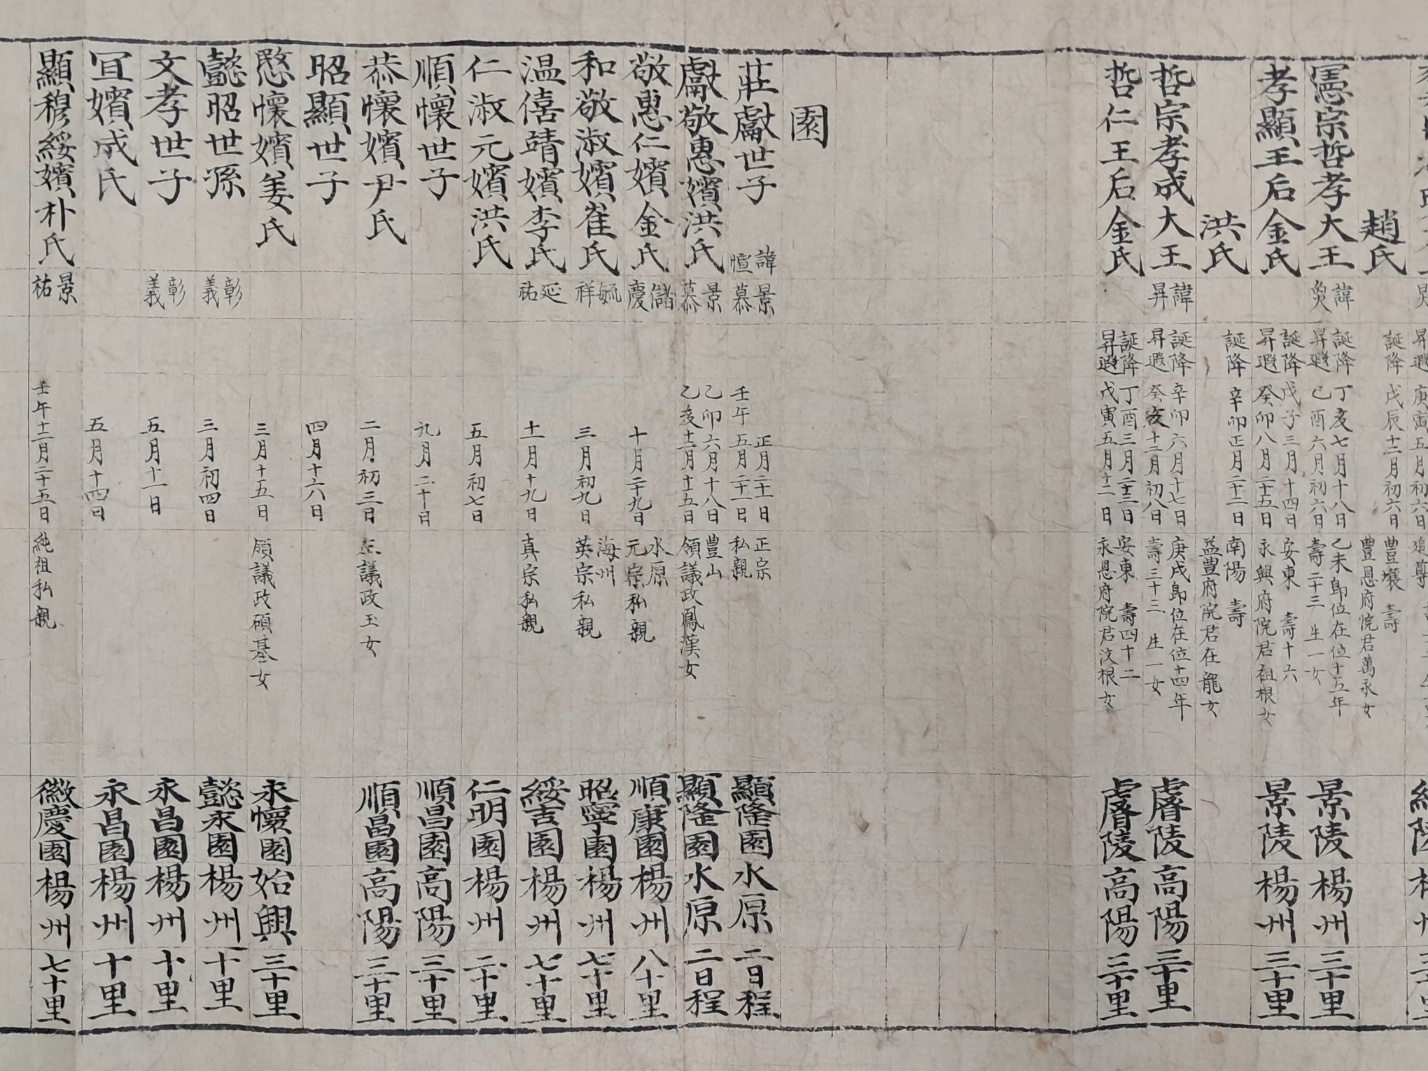 趙氏
誕降 戊辰十二月初六日 豊壤 壽
豊恩府院君萬永女
憲宗哲孝大王 諱奐
誕降 丁亥七月十八日 乙未即位在位十五年
昇遐 己酉六月初六日 壽二十三 生一女
景陵 楊州 三十里
孝顯王后金氏
誕降 戊子三月十四日 安東 壽十六
昇遐 癸卯八月二十五日 永興府院君祖根女
景陵 楊州 三十里
洪氏
誕降 辛卯正月二十二日 南陽 壽
益豊府院君在龍女
哲宗孝成大王 諱昇
誕降 辛卯六月十七日 庚戌即位在位十四年
昇遐 癸亥十二月初八日 壽三十三 生一女
睿陵 高陽 三十里
哲仁王后金氏
誕降 丁酉三月二十三日 安東 壽四十二
昇遐 戊寅五月十二日 永恩府院君汶根女
睿陵 高陽 三十里
園
莊獻世子 諱愃 景慕
正月二十一日 正宗
壬午五月二十一日 私親
顯隆園 水原 二日程
獻敬惠嬪洪氏 景慕
乙卯六月十八日 豊山
乙亥十二月十五日 領議政鳳漢女
顯隆園 水原 二日程
敬惠仁嬪金氏 儲慶
十月二十九日 水原 元宗私親
順康園 楊州 八十里
和敬淑嬪崔氏 毓祥
三月初九日 海州 英宗私親
昭寧園 楊州 七十里
温僖靖嬪李氏 延祜
十一月十九日 真宗私親
綏吉園 楊州 七十里
仁淑元嬪洪氏
五月初七日
仁明園 楊州 二十里
順懷世子
九月二十日
順昌園 高陽 三十里
恭懷嬪尹氏
二月初三日 左議政玉女
順昌園 高陽 三十里
昭顯世子
四月十六日
愍懷嬪姜氏
三月十五日 領議政碩基女
永懷園 始興 三十里
懿昭世孫 彰義
三月初四日
懿永園 楊州 十里
文孝世子 彰義
五月十一日
永昌園 楊州 十里
宜嬪成氏
五月十四日
永昌園 楊州 十里
顯穆綏嬪朴氏 景祐
壬午十二月二十五日 純祖私親
徽慶園 楊州 七十里